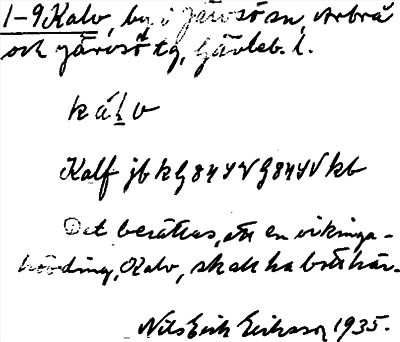 1-9 Kalv, by i Järvsö sn, Arbrå
och Järvsö tg, Gävleb. l.
kálv
Kalf jb k G
Det berättas, att en vikinga-
hövding, Kalv, skall ha bott här.
Nils Erik Eriksson 1935.